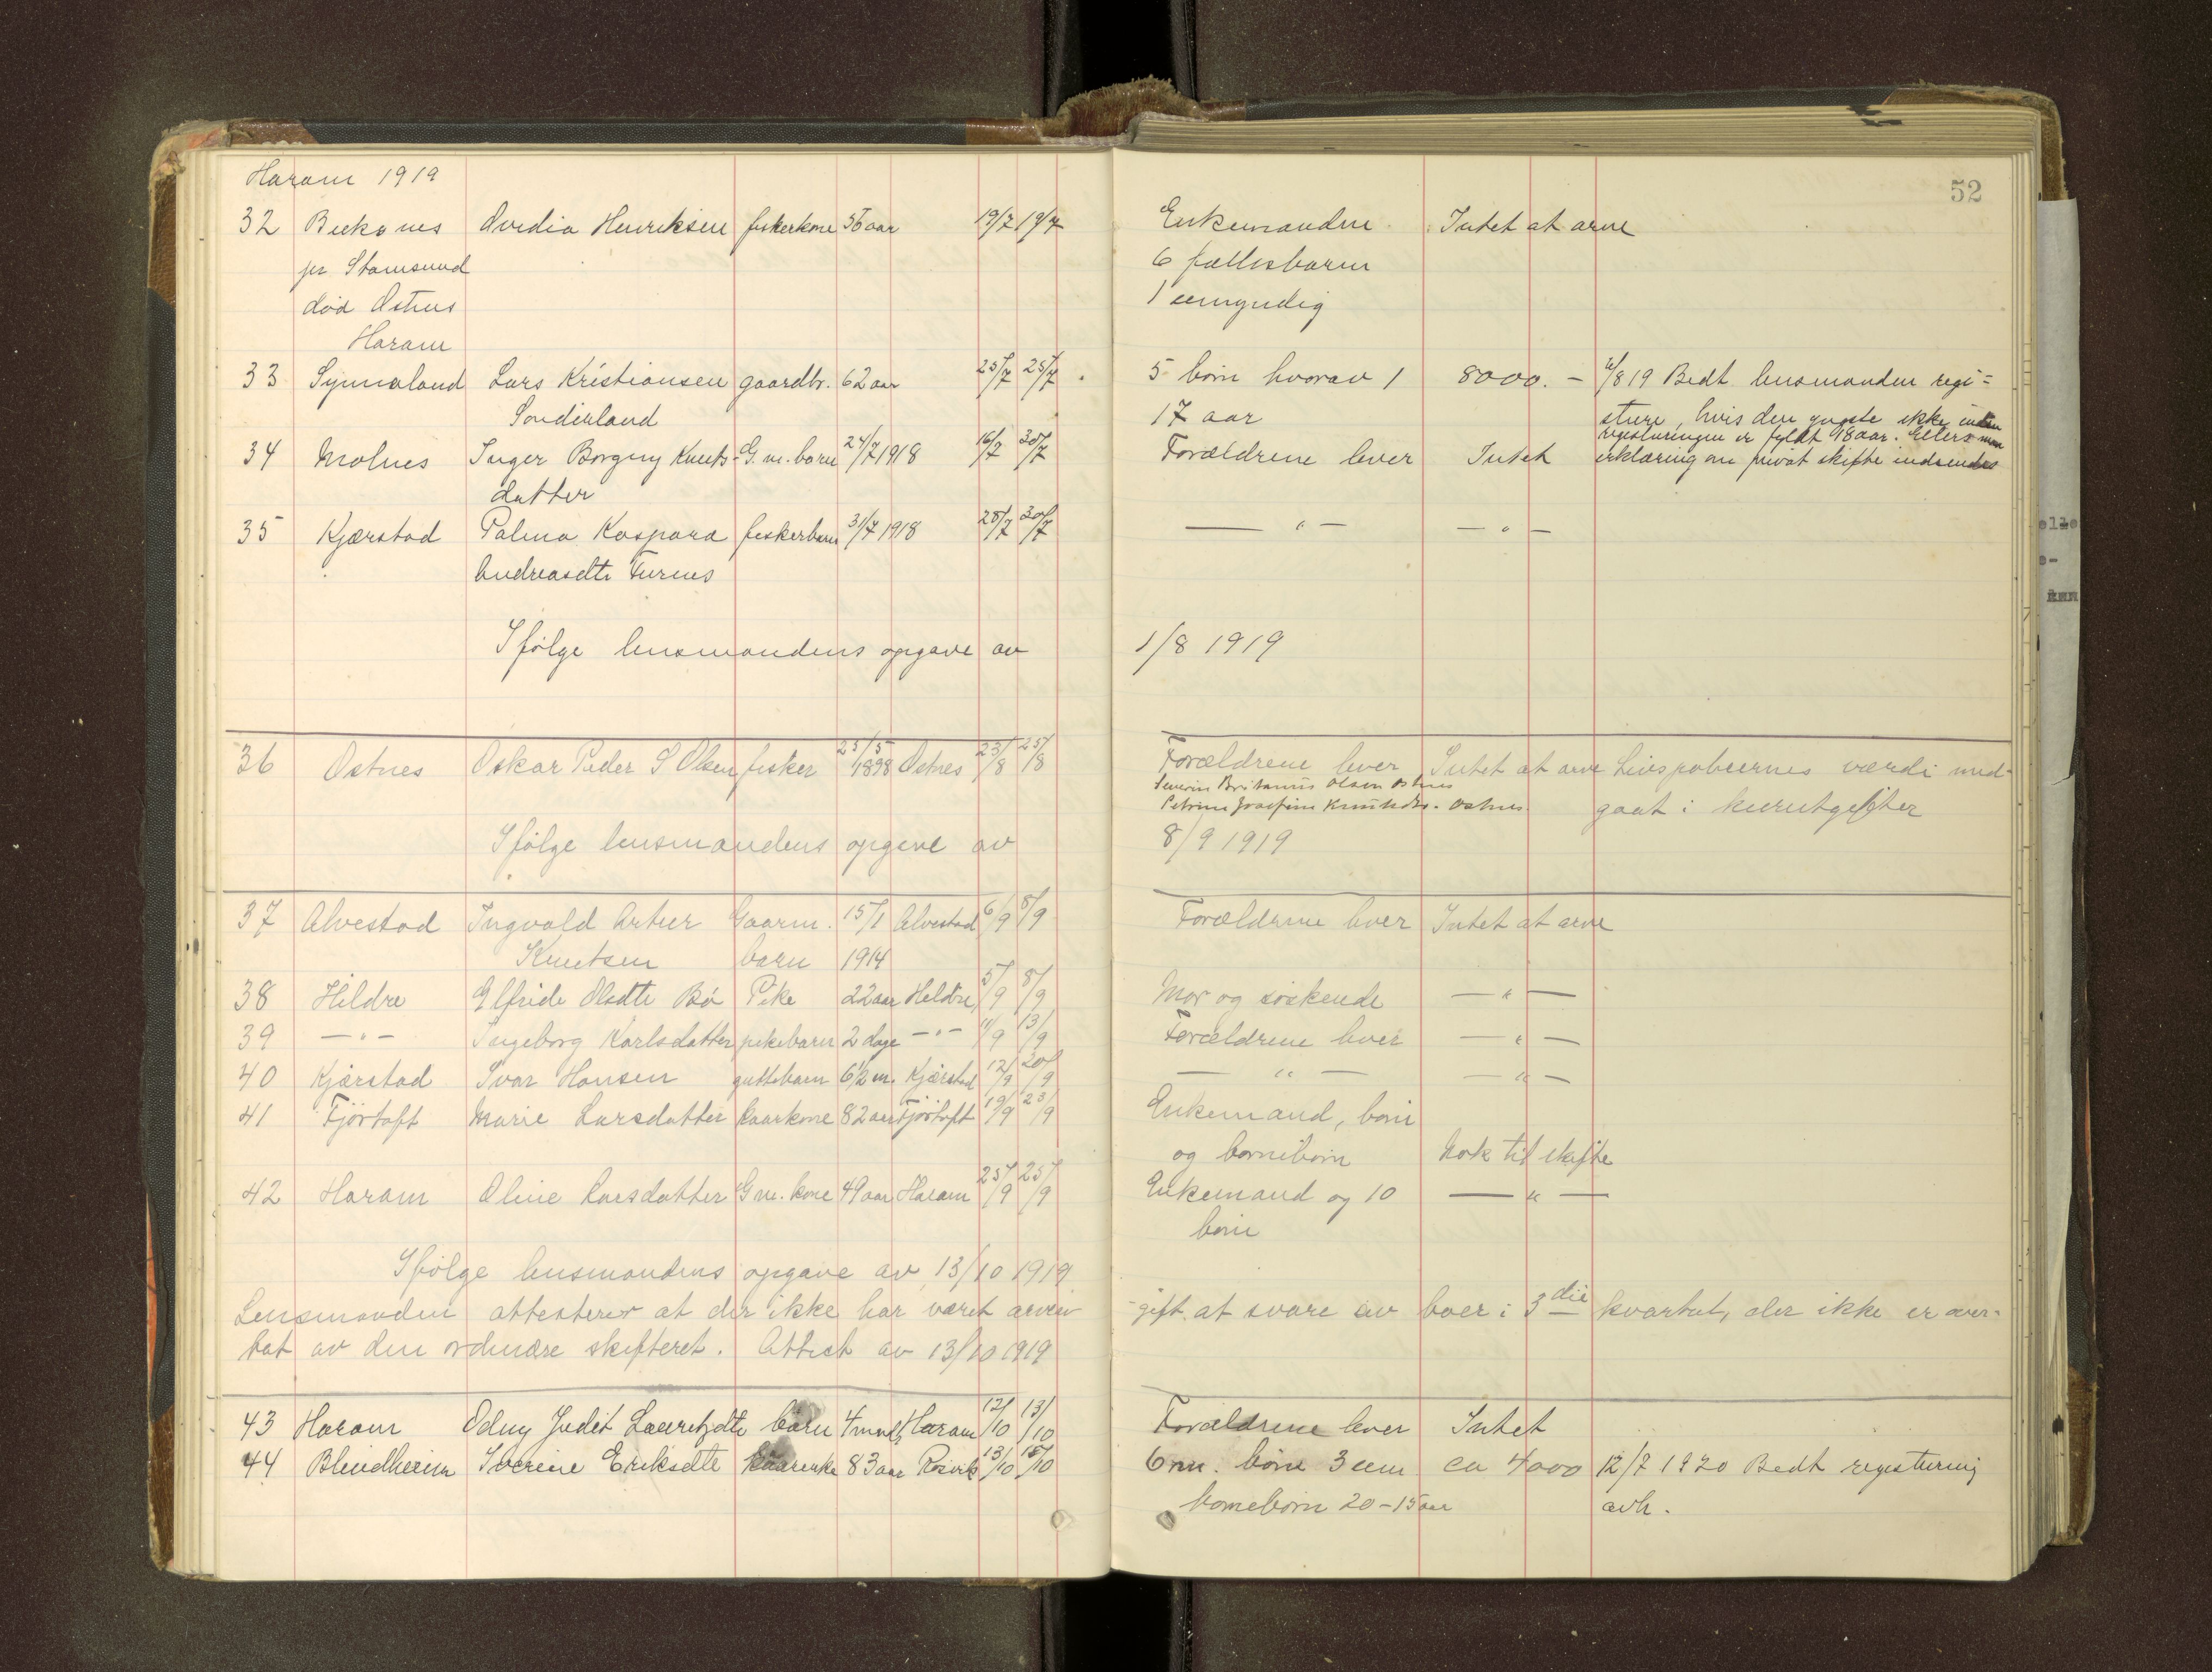 52
Haram 1919
32 Ovidia Henriksen fiskerkone 56 aar 19/7 19/7 Enkemanden Intet at arve
pr Stamsund 6 fællesbarn
død Østnes 1 umyndig
Haram
33 Synnaland Lars Kristiansen gaardbr. 62 aar 25/7 25/7 5 børn hvorav 1 8000.- /8 19 Bedt lensmanden regi=
Sønderland 17 aar strere, hvis den yngste ikke inden
registreringen er fyldt 18 aar. Ellers maa
34 Molnes Inger Borgny Knuts- G.m. barn 24/7 1918 16/7 30/7 Forældrene lever Intet erklæring om privat skifte indsendes
datter
35 Kjærstad Palma Kaspara fiskerbarn 31/7 1918 28/7 30/7 — " — — " —
Andreasdtr Furnes
Ifølge lensmandens opgave av 1/8 1919
36 Østnes Oskar Peder S Olsen fisker 25/5 1898 Østnes 23/8 25/8 Forældrene lever Intet at arve Livspolicernes værdi med-
Severin Britanius Olsen Østnes
Petrine Josefine Knutsdtr. Østnes gaat i kurutgifter
Ifølge lensmandens opgave av 8/9 1919
37 Alvestad Ingvald Artur Gaarm. 15/1 Alvestad 6/9 8/9 Forældrene lever Intet at arve
Knutsen barn 1914
38 Hildre Elfride Olsdtr Bø Pike 22 aar Hildre 5/9 8/9 Mor og søskende — " —
39 — " — Ingeborg Karlsdatter pikebarn 2 dage — " — 11/9 13/9 Forældrene lever — " —
40 Kjærstad Ivar Hansen guttebarn 6½ m. Kjærstad 12/9 20/9 — " — — " —
41 Fjørtoft Marie Larsdatter kaarkone 82 aar Fjørtoft 19/9 23/9 Enkemand, børn
og børnebørn Nok til skifte
42 Haram Oline Larsdatter G m. kone 49 aar Haram 25/9 25/9 Enkemand og 10 — " —
børn
Ifølge lensmandens opgave av 13/10 1919
Lensmanden attesterer at der ikke har været arveav-gift at svare av boer i 3die kvartal, der ikke er over-
tat av den ordinære skifteret. Attest av 13/10 1919
43 Haram Odny Judit Lauritzdtr barn 4 mndr Haram 12/10 13/10 Forældrene lever Intet
44 Blindheim Iverine Eriksdtr kaarenke 83 aar Røsvik 13/10 15/10 6 m. børn 3 um ca 4000 12/7 1920 Bedt registrering
børnebørn 20-15 aar avh.